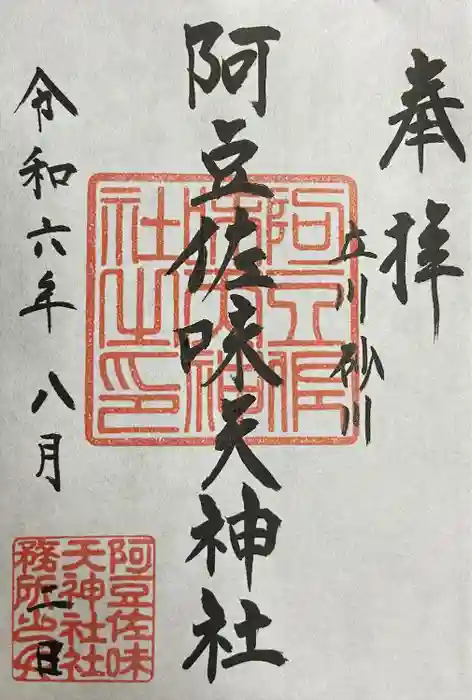 奉拝
立川砂川
阿豆佐味天神社
令和六年八月二日
阿豆佐
味天神
社之印
阿豆佐味
天神社社
務所之印